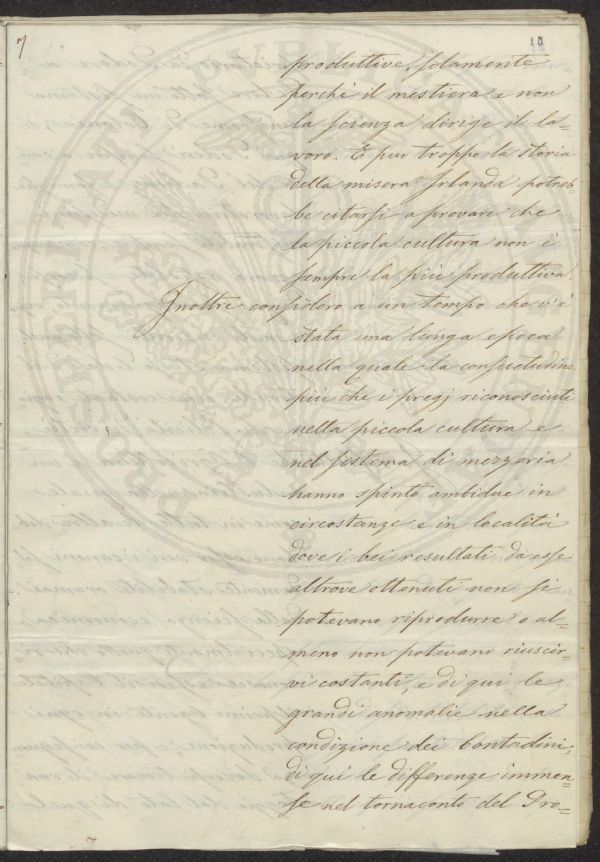 7
10
produttive, solamente
perchè il mestiera e non
la scienza dirige il la=
voro. E pur troppo la storia
della misera Irlanda potreb
be citarsi a provare che
la piccola cultura non è
sempre la più produttiva
Inoltre considero a un tempo che v'è
stata una lunga epoca
nella quale la consuetudine
più che i pregj riconosciuti
nella piccola cultura e
nel sistema di mezzeria
hanno spinto ambidue in
circostanze e in località
dove i bei resultati da esse
altrove ottenuti non si
potevano riprodurre o al=
meno non potevano riuscir=
vi costanti, e di qui le
grandi anomalie nella
condizione dei Contadini,
di qui le differenze immen=
se nel tornaconto del Pro=